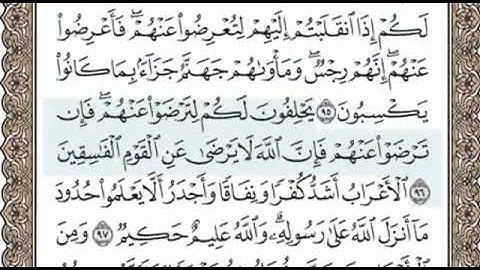 لَكُمْ إِذَا ٱنقَلَبْتُمْ إِلَيْهِمْ لِتُعْرِضُوا۟ عَنْهُمْ ۖ فَأَعْرِضُوا۟
عَنْهُمْ ۖ إِنَّهُمْ رِجْسٌ ۖ وَمَأْوَىٰهُمْ جَهَنَّمُ جَزَآءًۢ بِمَا كَانُوا۟
يَكْسِبُونَ ٩٥ يَحْلِفُونَ لَكُمْ لِتَرْضَوْا۟ عَنْهُمْ ۖ فَإِن
تَرْضَوْا۟ عَنْهُمْ فَإِنَّ ٱللَّهَ لَا يَرْضَىٰ عَنِ ٱلْقَوْمِ ٱلْفَٰسِقِينَ
٩٦ ٱلْأَعْرَابُ أَشَدُّ كُفْرًا وَنِفَاقًا وَأَجْدَرُ أَلَّا يَعْلَمُوا۟ حُدُودَ
مَآ أَنزَلَ ٱللَّهُ عَلَىٰ رَسُولِهِۦ ۗ وَٱللَّهُ عَلِيمٌ حَكِيمٌ ٩٧ وَمِنَ